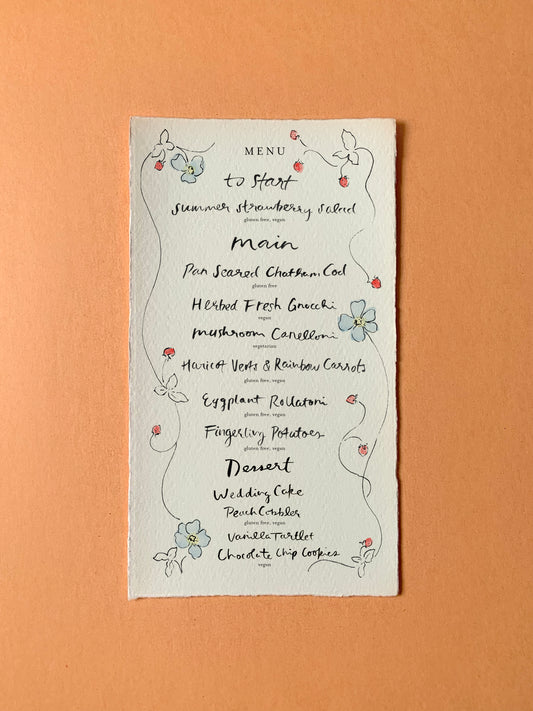 MENU
to start
Summer Strawberry Salad
gluten free, vegan
main
Pan Seared Chatham Cod
gluten free
Herbed Fresh Gnocchi
vegan
Mushroom Canelloni
vegetarian
Haricot Verts & Rainbow Carrots
gluten free, vegan
Eggplant Rollatoni
gluten free, vegan
Fingerling Potatoes
gluten free, vegan
Dessert
Wedding Cake
Peach Cobbler
gluten free, vegan
Vanilla Tartlet
Chocolate Chip Cookies
vegan